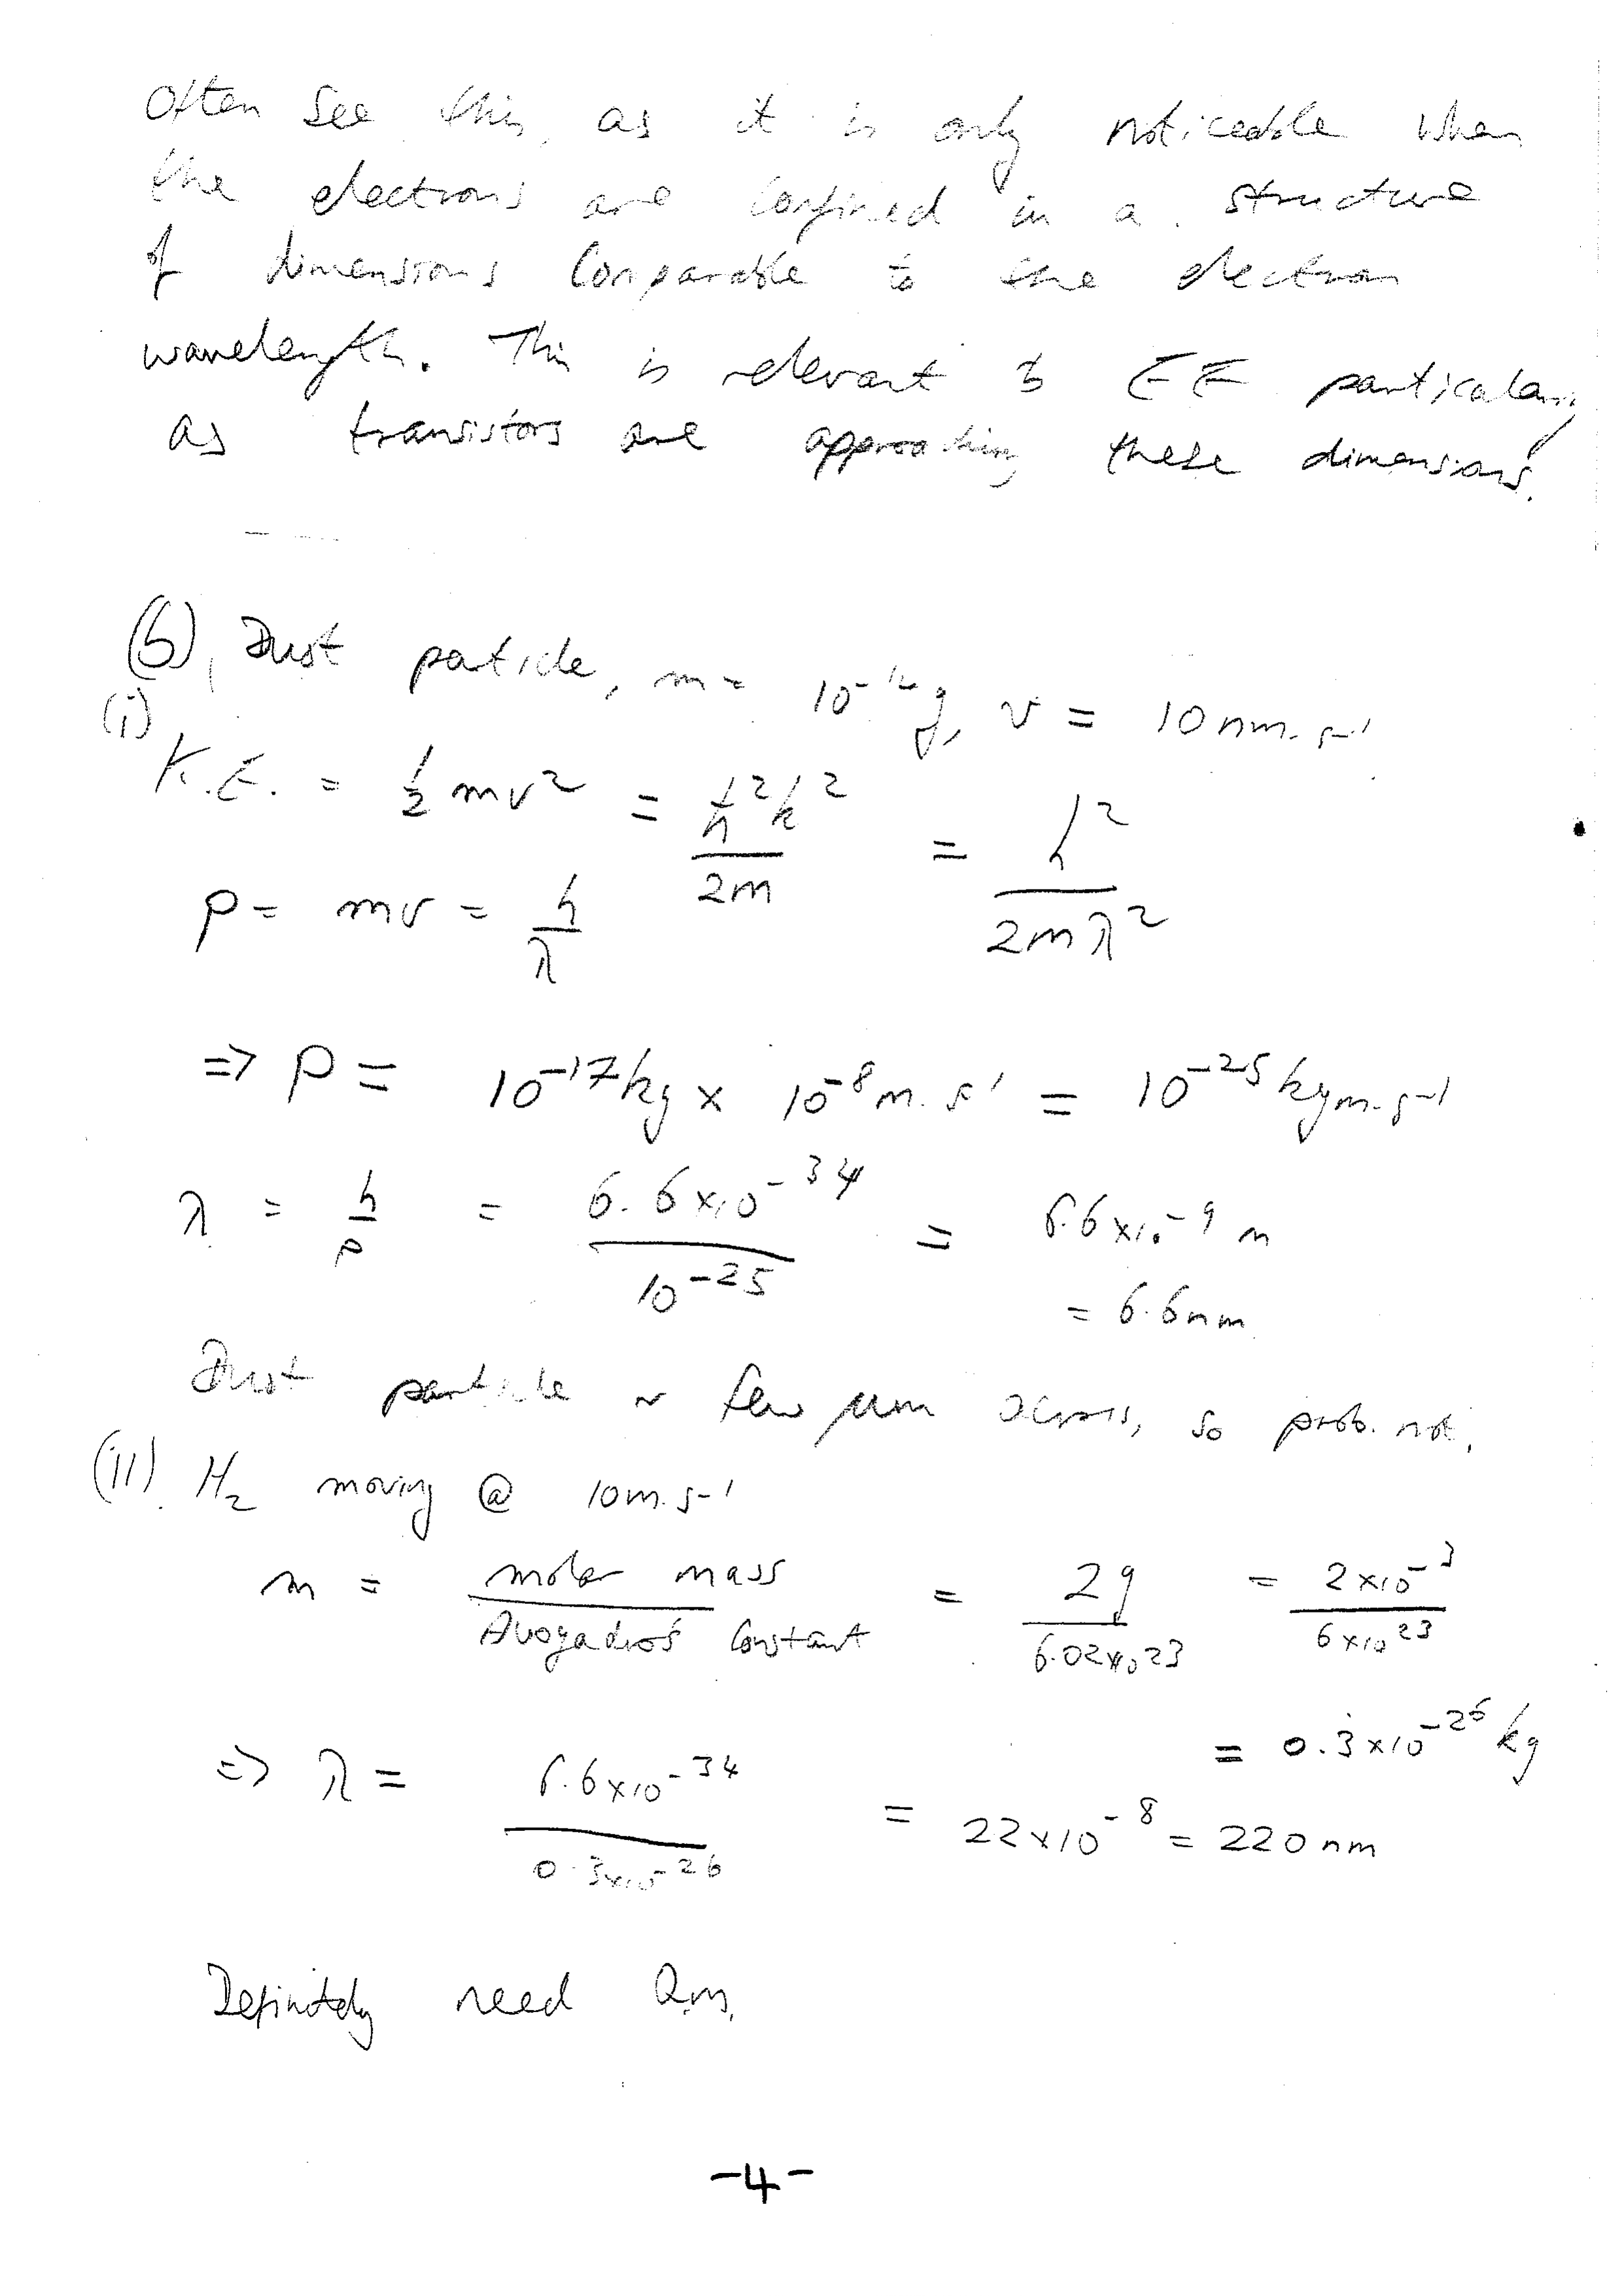 Often see this, as it is only noticeable when
the electrons are confined in a structure
of dimensions comparable to the electron
wavelength. This is relevant to EE particularly
as transistors are approaching these dimensions.
(b), Dust particle, m = 10⁻¹⁴g, v = 10nm.s⁻¹
(i)
K.E. = ½mv² = ℏ²k²/2m = h²/2mλ²
p = mv = h/λ
=> p = 10⁻¹⁷kg × 10⁻⁸m.s⁻¹ = 10⁻²⁵kgm.s⁻¹
λ = h/p = 6.6×10⁻³⁴/10⁻²⁵ = 6.6×10⁻⁹m
= 6.6nm
Dust particle ~ few μm across, so prob. not.
(ii). H₂ moving @ 10m.s⁻¹
m = molar mass/Avogadro's constant = 2g/6.02×10²³ = 2×10⁻³/6×10²³
= 0.3×10⁻²⁶kg
=> λ = 6.6×10⁻³⁴/0.3×10⁻²⁶ = 22×10⁻⁸ = 220nm
Definitely need Q.m.
-4-